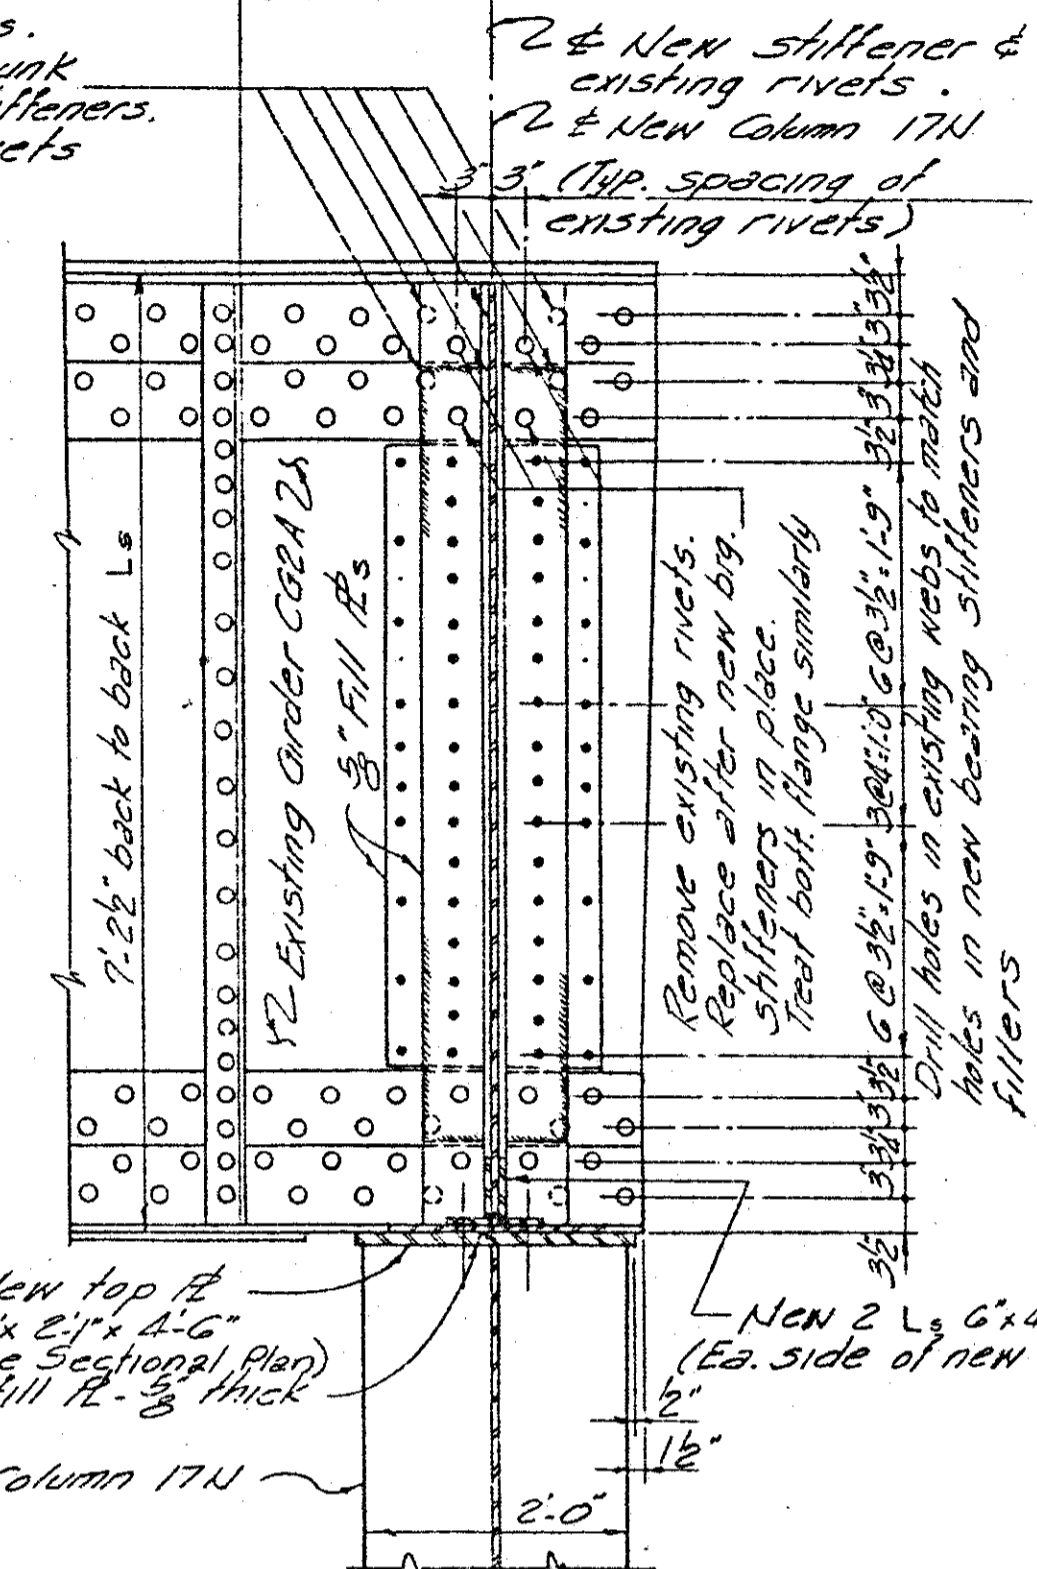 s.
unk
iffeners.
ets
℄ New stiffener &
existing rivets.
℄ New Column 17N
3" 3" (Typ. spacing of
existing rivets)
7'-2½" back to back Ls
Existing Girder CG2A
⅝" Fill ₧s
Remove existing rivets.
Replace after new brg.
stiffeners in place.
Treat bott. flange similarly
3½" 3" 3¼" 3" 3½" 6 @ 3½" = 1'-9" 3@4"=1'-0" 6 @ 3½" = 1'-9" 3½" 3" 3¼" 3" 3½"
Drill holes in existing webs to match
holes in new bearing stiffeners and
fillers
New top ₧
x 2'-1" x 4'-6"
e Sectional Plan)
Fill ₧ - ⅝" thick
New 2 Ls 6"x4
(Ea. side of new
½"
1½"
Column 17N
2'-0"